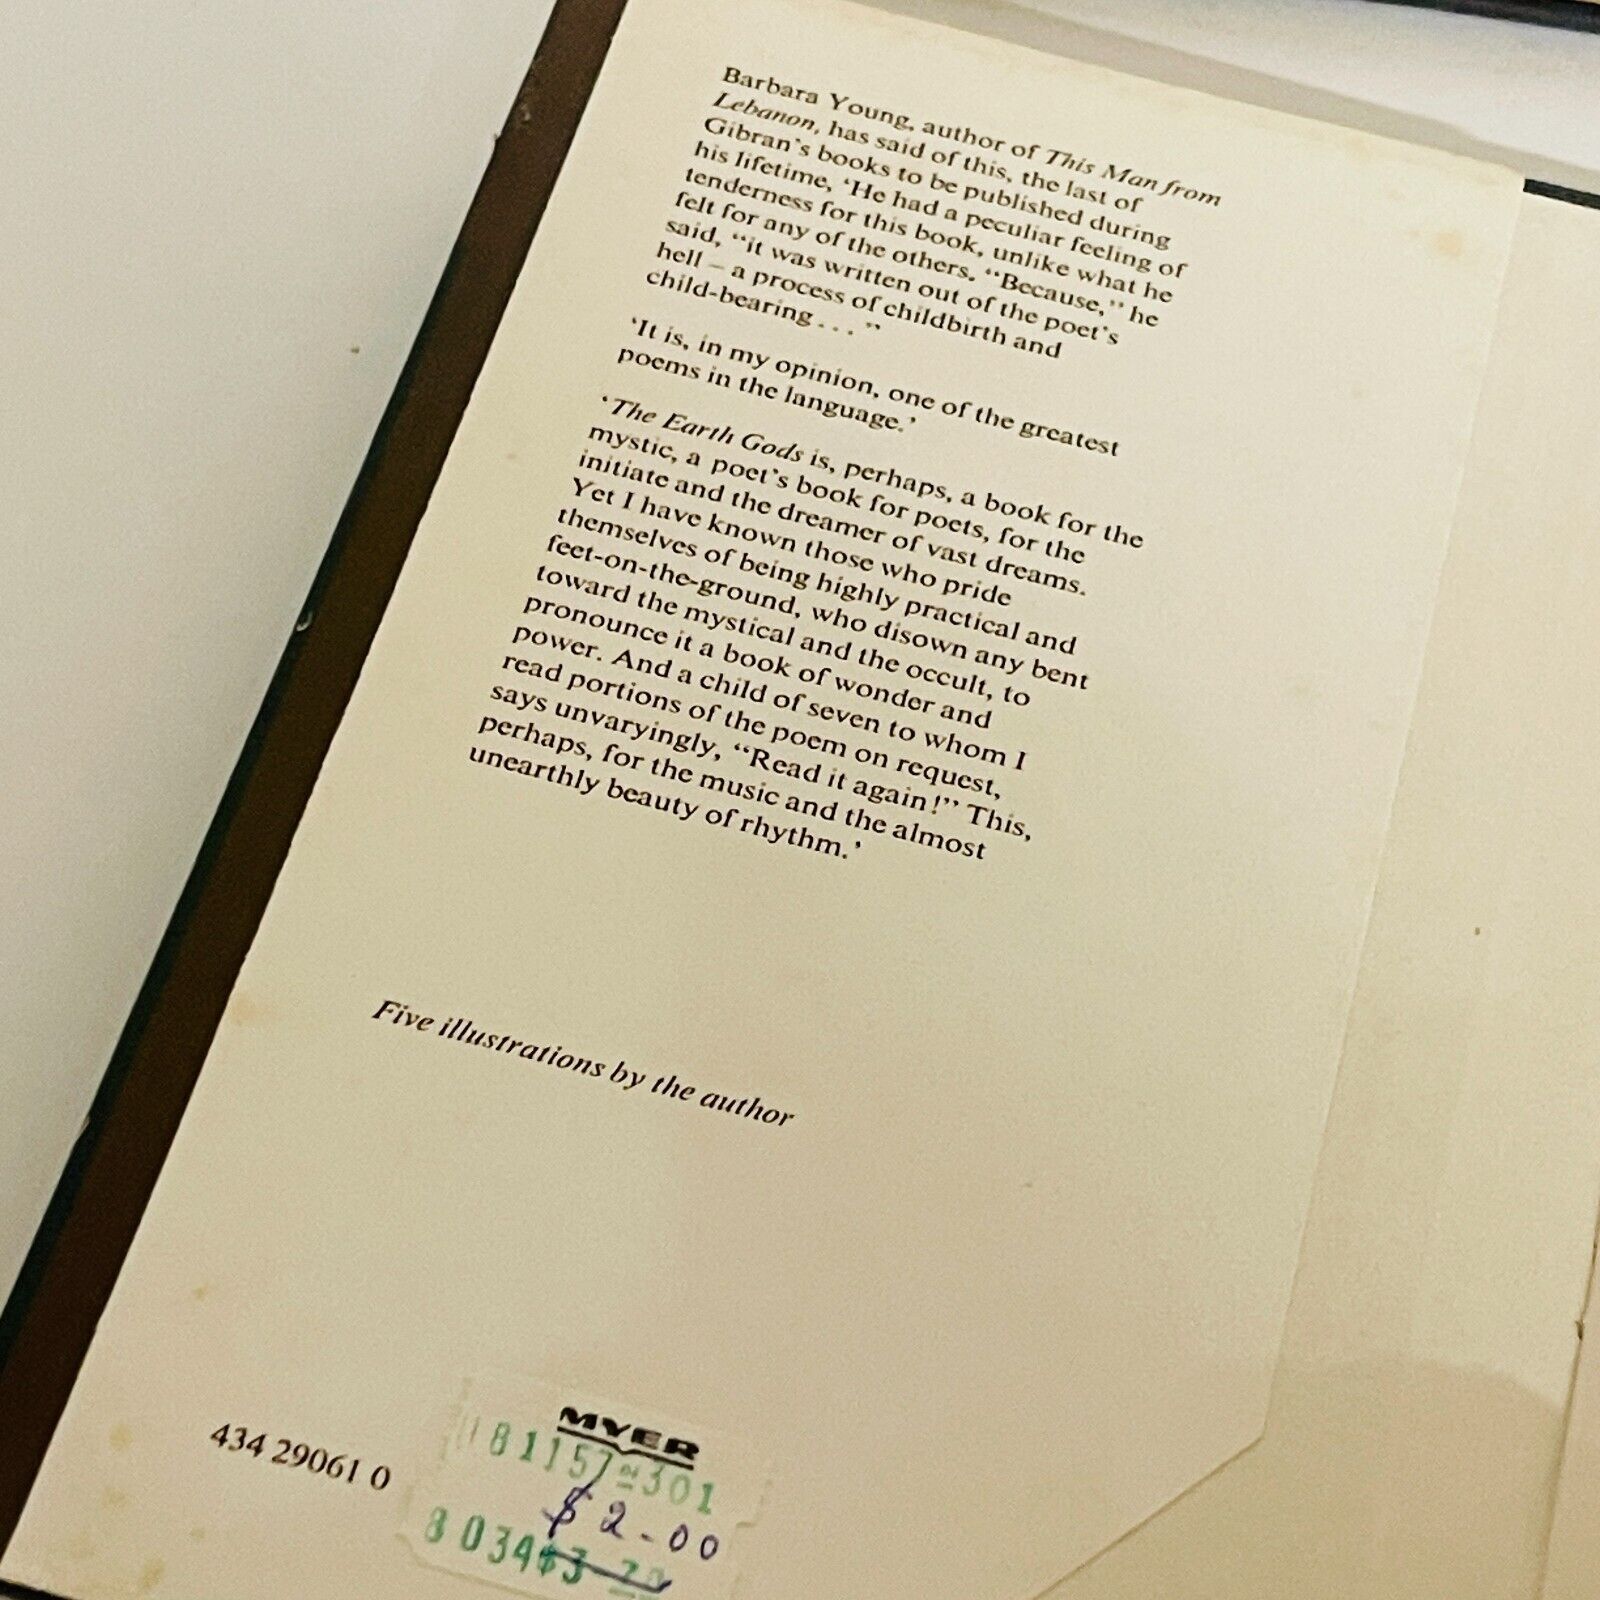 Barbara Young, author of This Man from
Lebanon, has said of this, the last of
Gibran's books to be published during
his lifetime, 'He had a peculiar feeling of
tenderness for this book, unlike what he
felt for any of the others. "Because," he
said, "it was written out of the poet's
hell – a process of childbirth and
child-bearing . . . "
'It is, in my opinion, one of the greatest
poems in the language.'
'The Earth Gods is, perhaps, a book for the
mystic, a poet's book for poets, for the
initiate and the dreamer of vast dreams.
Yet I have known those who pride
themselves of being highly practical and
feet-on-the-ground, who disown any bent
toward the mystical and the occult, to
pronounce it a book of wonder and
power. And a child of seven to whom I
read portions of the poem on request,
says unvaryingly, "Read it again!" This,
perhaps, for the music and the almost
unearthly beauty of rhythm.'
Five illustrations by the author
434 29061 0
MYER
81157 301
$2-00
8034 $3